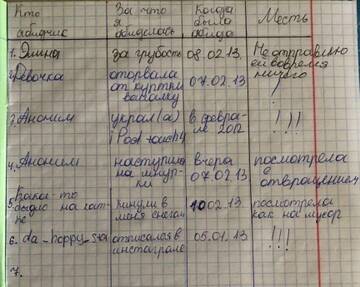 Кто обидчик
За что я обиделась
Когда была обида
Месть
1. Элина
за грубость
08.02.13
Не отправляю ей вовремя ничего
2. Девочка
оторвала от куртки
07.02.13
!
3. Аноним
украл(а) iPod touch
в феврале 2012
!!!
4. Аноним
наступила на шнурки
вчера 07.02.13
посмотрела с отвращением
5. Какая-то быдло на катке
кинули в меня снегом
10.02.13
посмотрела как на мусор
6. da_happy_
отписался в инстаграме
05.01.13
!!!
7.